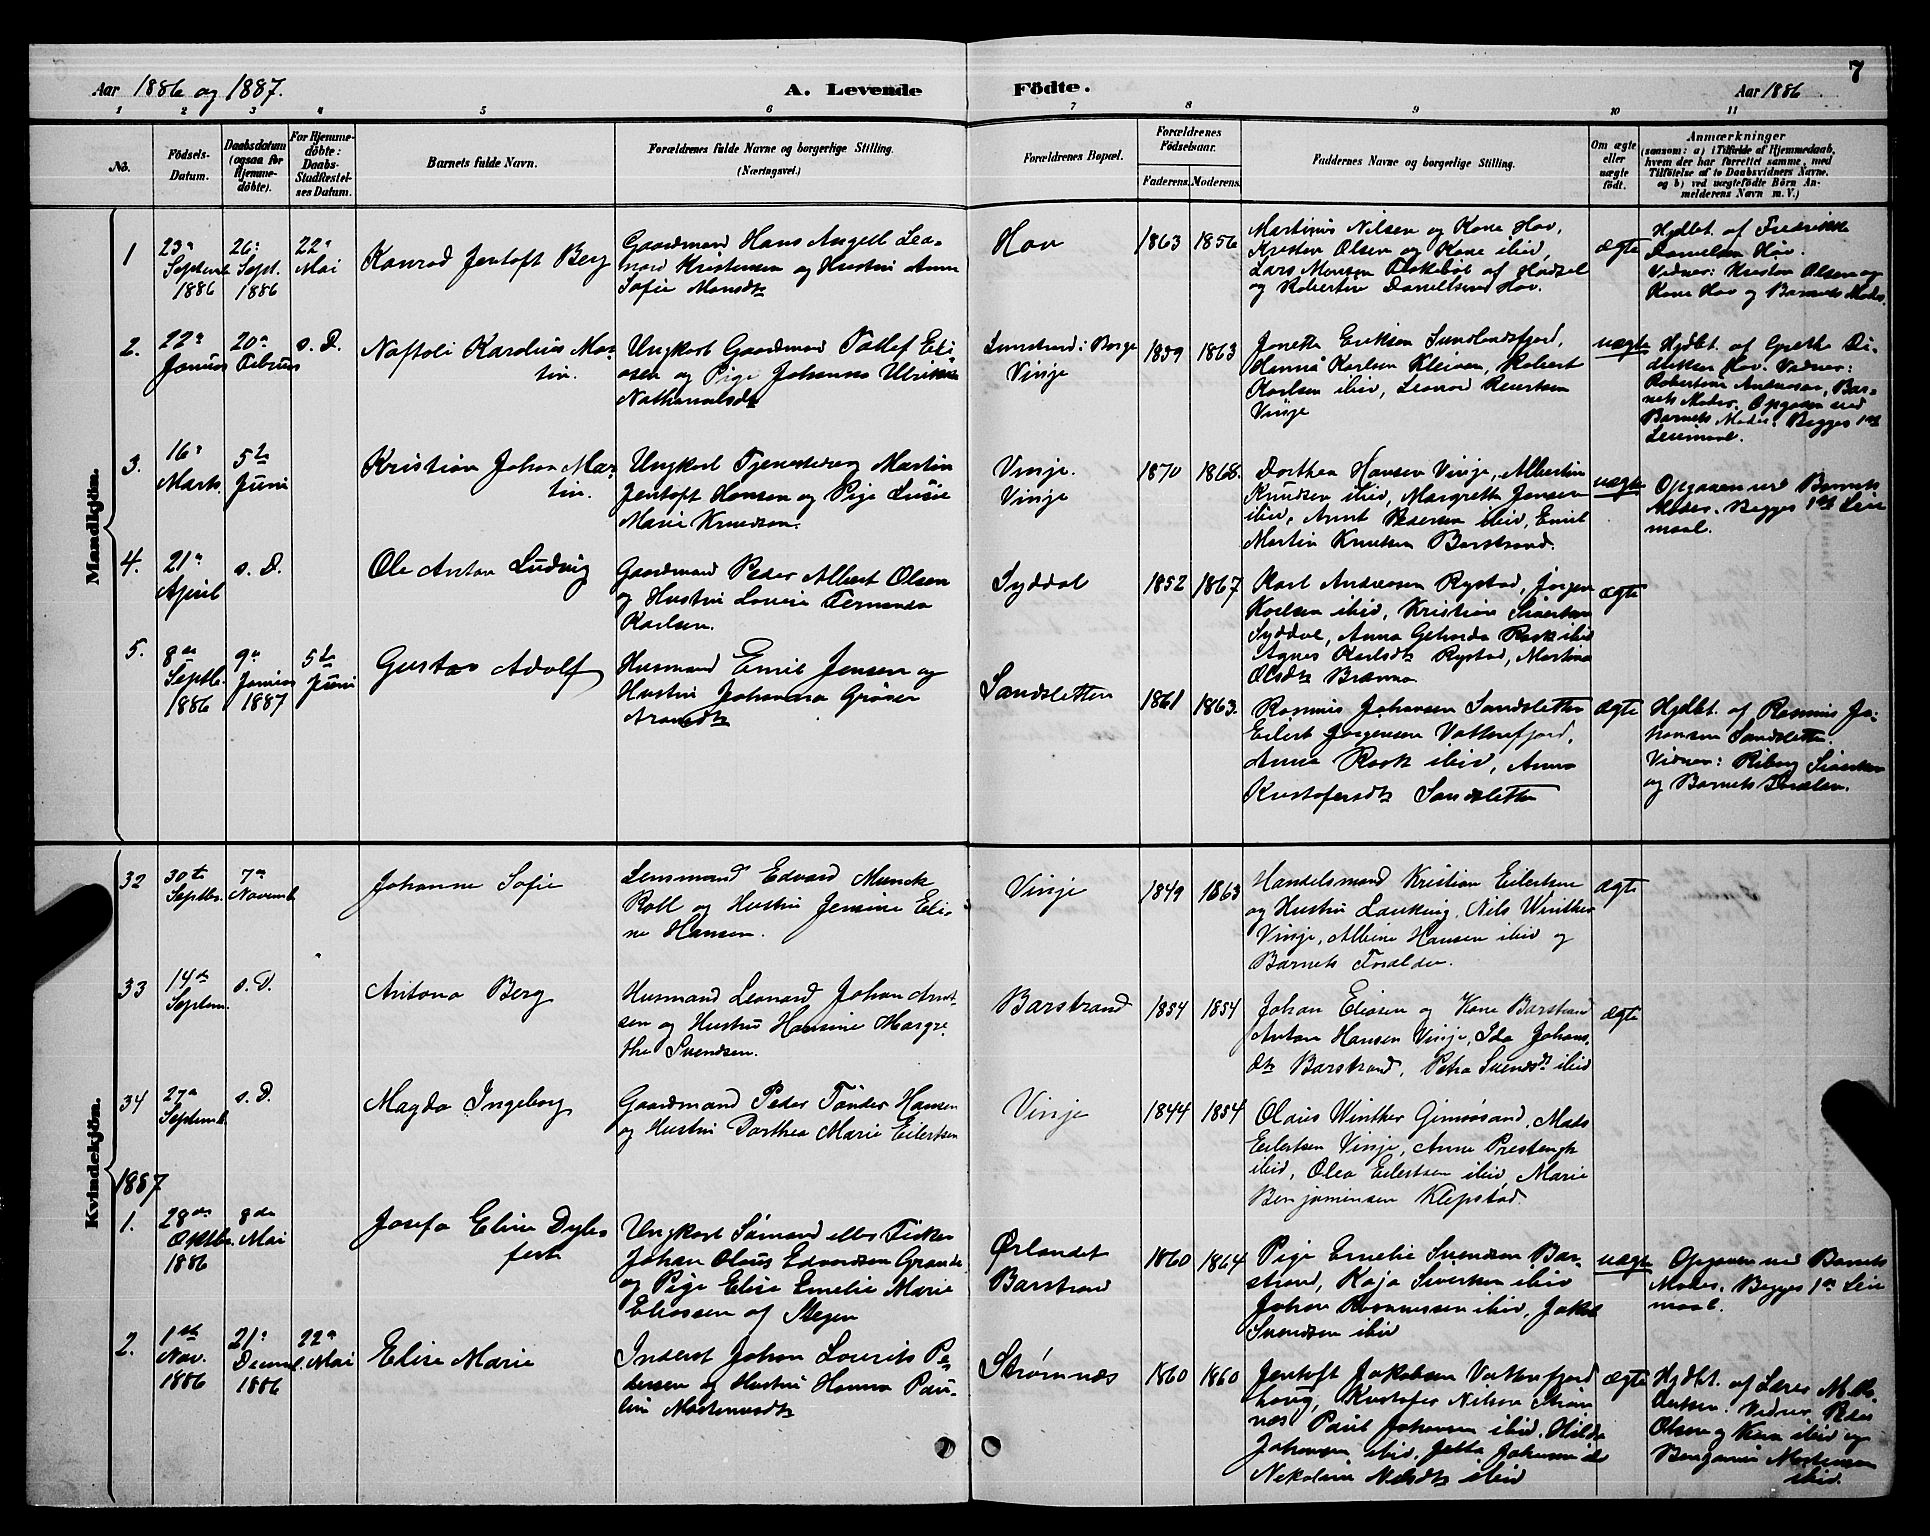 7
Aar 1886 og 1887.
A. Levende Födte.
Aar 1886
1 2 3 4 5 6 7 8 9 10 11
No.
Födsels-
Datum.
Daabsdatum
(ogsaa for
Hjemme-
döbte).
For Hjemme-
döbte:
Daabs-
Stadfæstel-
ses Datum.
Barnets fulde Navn.
Forældrenes fulde Navne og borgerlige Stilling.
(Næringsvei.)
Forældrenes Bopæl.
Forældrenes
Födselsaar.
Faderens. Moderens.
Faddernes Navne og borgerlige Stilling.
Om ægte
eller
uægte
födt.
Anmærkninger
(saasom: a) i Tilfælde af Hjemmedaab,
hvem der har forrettet samme, med
Tilföielse af to Daabsvidners Navne.
og b) ved uægtefödte Börn An-
melderens Navn m. V.)
Mandkjön.
1
23de
Septemb.
1886
26de
Sept.
1886
22de
Mai
Konrad Jentoft Berg
Gaardmand Hans Angell Leo-
nard Kristensen og Hustru Anne
Sofie Monsdtr
Hov
1863 1856
Martinus Nilsen og Kone Hov,
Kresten Olsen og Kone ibid,
Lars Monsen af Hadsel
og Robertine Hov.
ægte
Hjdbt. af Fredrikke
Danielsen Hov.
Vidner: Kresten Olsen og
Kone Hov og Barnets Moder.
2.
22de
Januar
20de
Februar
s. D.
Naftoli Karolius Mar-
tin.
Ungkarl Gaardmand Tollef Eli-
asen og Pige Johanna Ulrikke
Nathanaelsdtr
Lunstrand i Borge
Vinje
1859 1863
Jonetta Eriksen Sundlandsfjord,
Hanna Karlsen Kleiven, Robert
Karlsen ibid, Leonard
Vinje
uægte
Hjdbt. af Grethe Di-
driksen Hov. Vidner:
Robertine Andreasen, Bar-
nets Moder. Opgaven ved
Barnets Moder. Begges 1ste
Leiermaal.
3.
16de
Marts.
5te
Juni
Kristian Johan Mar-
tin.
Ungkarl Tjenestedreng Martin
Jentoft Hansen og Pige Lusie
Marie Knudsen.
Vinje.
Vinje
1870 1868.
Dorthea Hansen Vinje, Albertine
Knudsen ibid, Margrethe Jensen
ibid, Arnt Pedersen ibid, Emil
Martin Knutsen Barstrand.
uægte
Opgaven ved Barnets
Moder. Begges 1ste Leier
maal.
4.
21de
April
s. D.
Ole Anton Ludvig
Gaardmand Peder Albert Olsen
og Hustru Lovise Fernanda
Karlsen.
Syddal
1852 1867
Karl Andreasen Rystad, Jørgen
Karlsen ibid, Kristian Sivertsen
Syddal, Anna Geharda Rask ibid
Agnes Karlsdtr Rystad, Martina
Olsdtr Brænna
ægte
5.
8de
Septb.
1886
9de
Januar
1887
5te
Juni
Gustav Adolf
Husmand Emil Jensen og
Hustru Johanna Grøger
Arondtr
Sandsletten
1861 1863.
Rasmus Johansen Sandsletten
Eilert Jørgensen Vatterfjord,
Anna Rask ibid, Anna
Kristofersdtr Sandsletten
ægte
Hjdbt. af Rasmus Jo-
hansen Sandsletten.
Vidner: Riborg Sivertsen
og Barnets Forældre.
Kvindekjön.
32
30te
Septbr.
7de
Novemb.
Johanne Sofie
Lensmand Edvard Munch
Roll og Hustru Jensine Eli-
ne Hansen.
Vinje
1849 1863
Handelsmand Kristian Eilertsen
og Hustru Laukvig, Nils Winther
Vinje, Albine Hansen ibid og
Barnets Forældre.
ægte
33
14de
Septem.
s. D.
Antona Berg
Husmand Leonard Johan Arnt-
sen og Hustru Hansine Margre-
the Svendsen.
Barstrand
1854 1854
Johan Eliasen og Kone Barstrand
Anton Hansen Vinje, Ida Johans-
dtr Barstrand, Petra Svendsdtr ibid
ægte
34
27de
Septemb.
s. D.
Magda Ingeborg
Gaardmand Peder Tønder Hansen
og Hustru Dorthea Marie Eilertsen
Vinje
1844 1854
Olaus Winther Gimsøsand, Mads
Eilertsen Vinje, Anna Prestengh
ibid, Olea Eilertsen ibid, Marie
Benjaminsen Klepstad.
1887
1.
28de
Oktbr.
1886
8de
Mai
Josefa Elise Dyb-
fest
Ungkarl Sømand eller Fisker
Johan Olaus Edvardsen Grande
og Pige Elise Emelie Marie
Eliassen af Stegen
Ørlandet
Barstrand
1860 1864
Pige Emelie Svendsen Bar-
strand, Kaja Sivertsen ibid
Johan Rasmussen ibid, Jakob
Svendsen ibid
uægte
Opgaven ved Barnets
Moder. Begges 1ste Leier
maal.
2.
1ste
Nov.
1886
21de
Decemb.
1886
22de
Mai
Elise Marie
Inderst Johan Lourits Pe-
dersen og Hustru Hanna Pau-
line Mortensdtr
Strømnæs
1860 1860
Jentoft Jakobsen Vatterfjord
houg, Kristofer Nilsen Strøm
næs Paul Johansen ibid, Hilda
Johansen ibid, Jetta
Nikoline Nilsdtr ibid
ægte
Hjdbt. af Lærer M.
Vidner Peder
Olsen og Kone ibid og
Benjamin Mortensen
ibid.